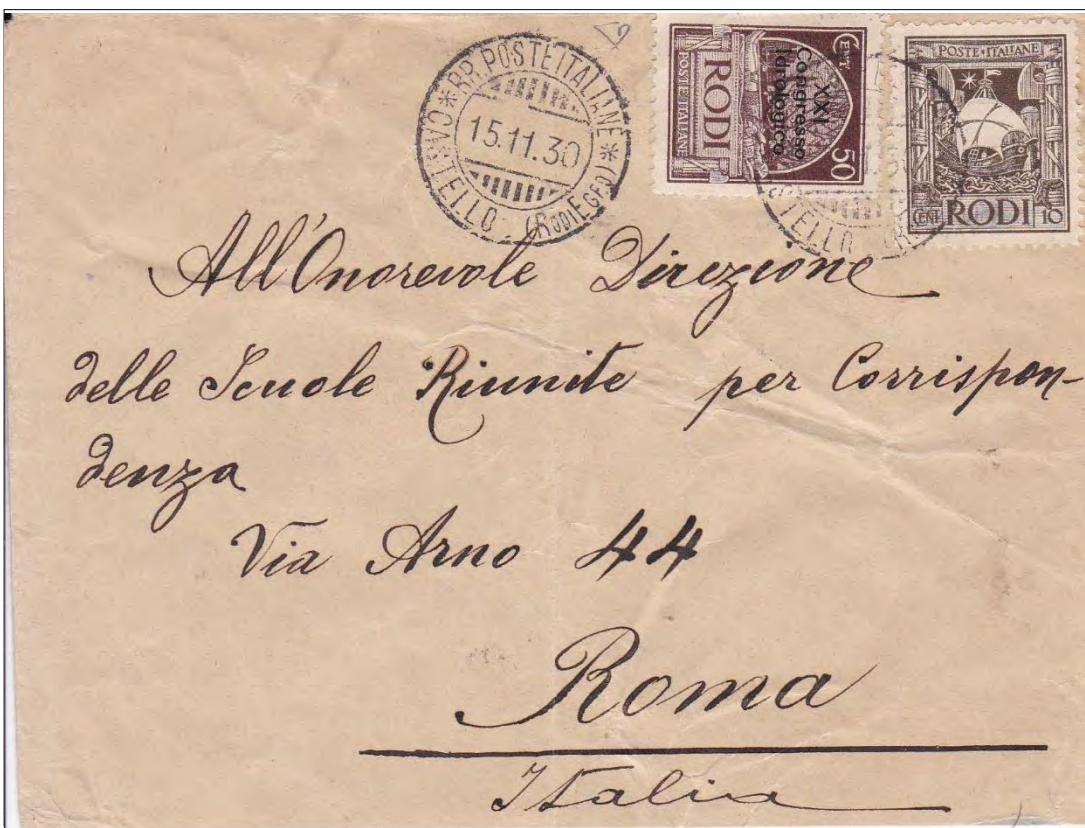 RR. POSTE ITALIANE
15.11.30
CASTELLO (RODI EGEO)
CENT 50
XXI
Congresso
Idrologico
RODI
POSTE ITALIANE
POSTE·ITALIANE
CENT RODI 10
All'Onorevole Direzione
delle Scuole Riunite per Corrispon-
denza
Via Arno 44
Roma
Italia